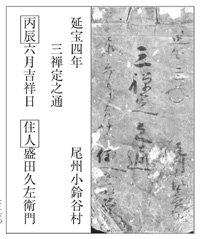 三禅定之通
延宝四年　尾州小鈴谷村
三禅定之通
丙辰六月吉祥日　住人盛田久左衛門